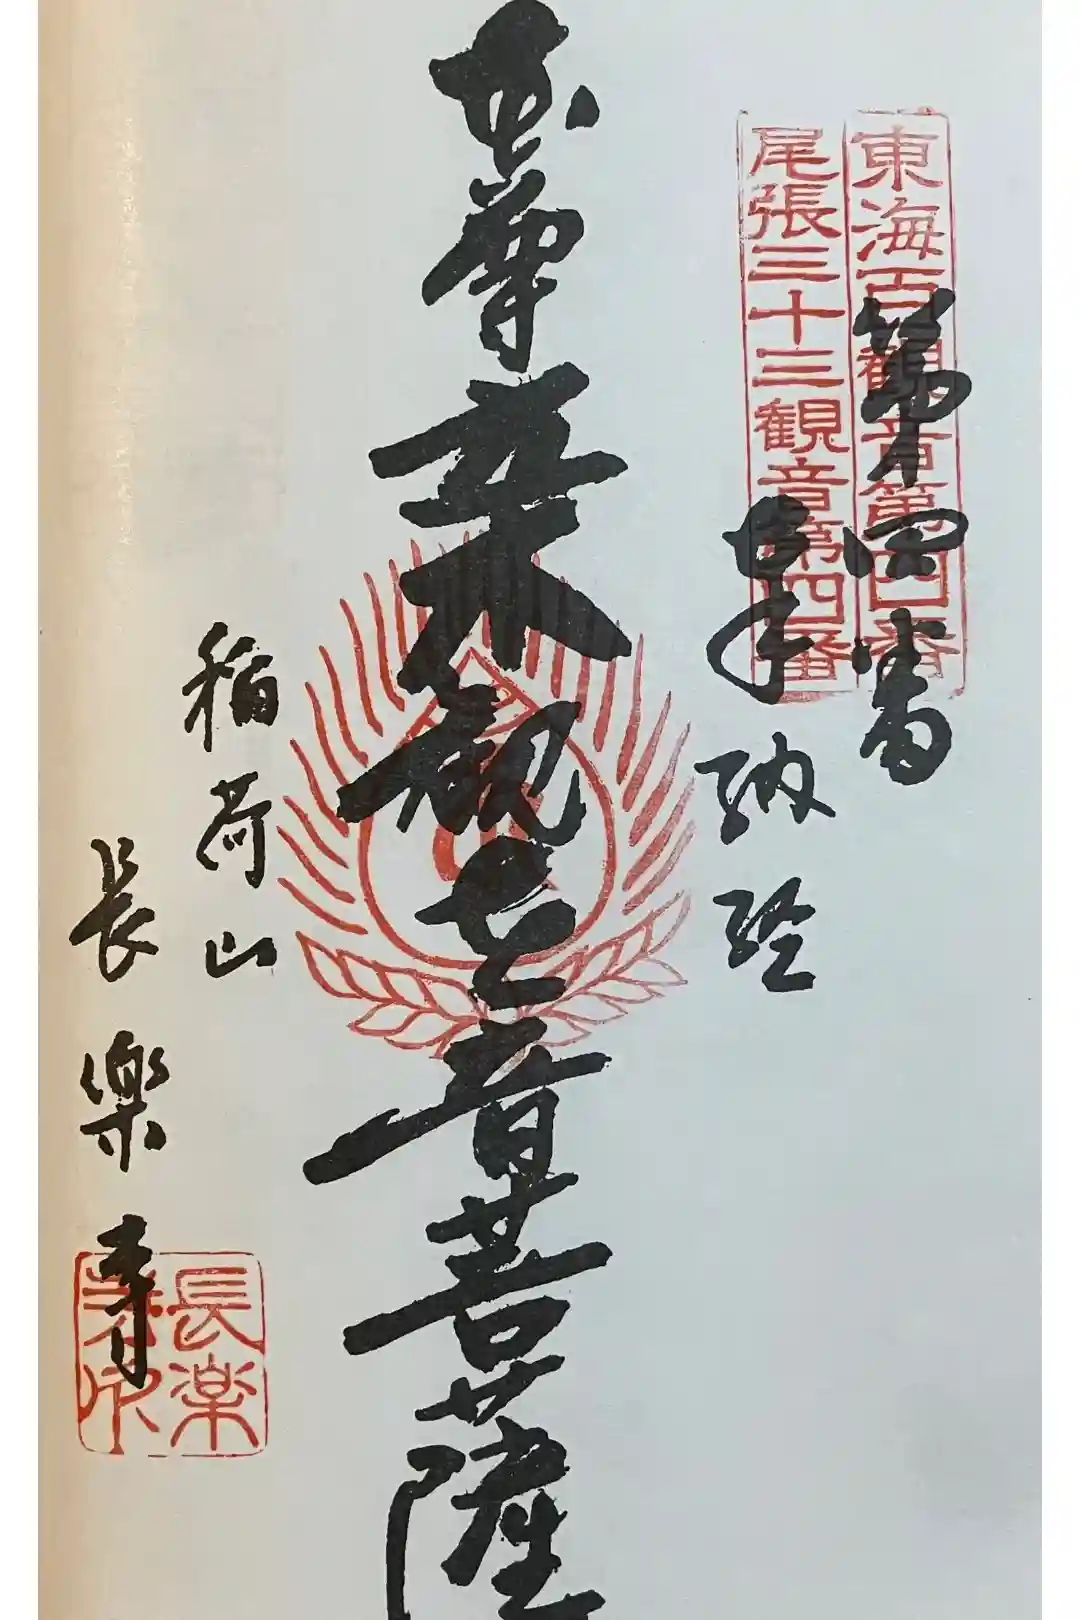 東海百観音第四番
尾張三十三観音第四番
第四番
奉納経
尊来観世音菩薩
稲荷山
長楽寺
長楽
寺印